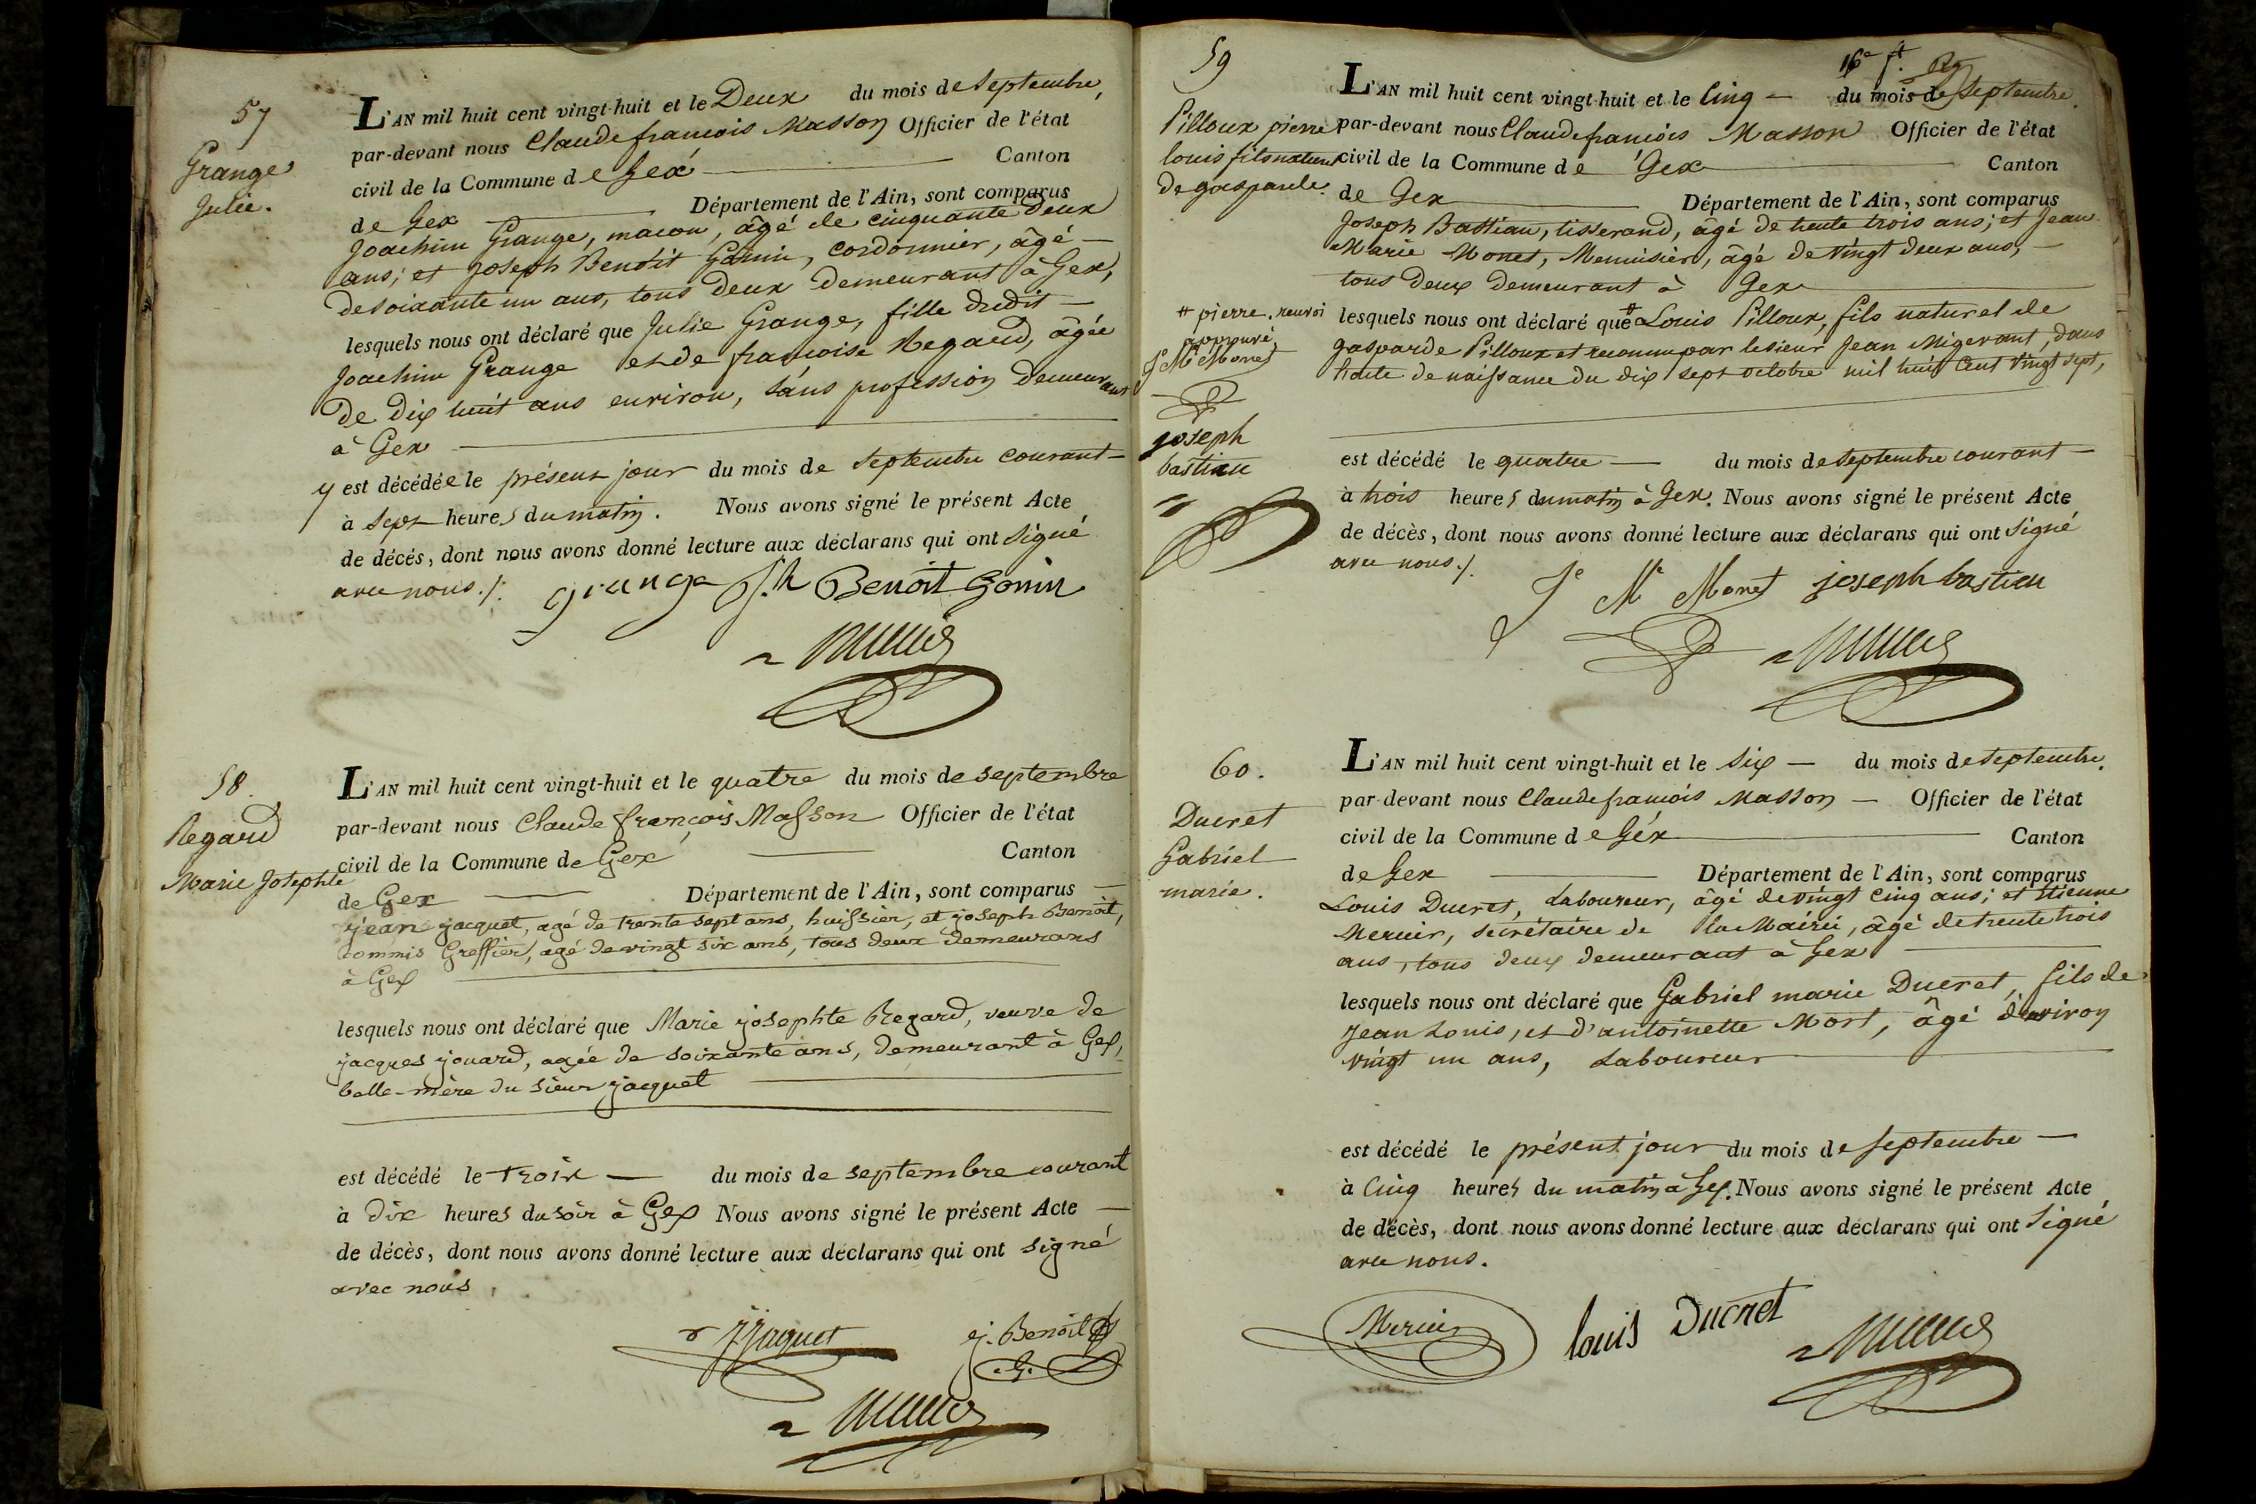 57
Grange
Julie.
L'AN mil huit cent vingt-huit et le Deux du mois de Septembre,
par-devant nous Claude françois Masson Officier de l'état
civil de la Commune de Gex Canton
de Gex Département de l'Ain, sont comparus
Joachim Grange, maçon, âgé de cinquante deux
ans; et Joseph Benoît Gonin, cordonnier, âgé
de soixante un ans, tous deux demeurant à Gex,
lesquels nous ont déclaré que Julie Grange, fille dudit
Joachim Grange et de françoise Regard, âgée
de dix huit ans environ, sans profession demeurant
à Gex
y est décédée le présent jour du mois de septembre courant
à sept heures du matin. Nous avons signé le présent Acte
de décès, dont nous avons donné lecture aux déclarans qui ont signé
avec nous ./.
grange Jh Benoît Gonin
58.
Regard
Marie Josephte
L'AN mil huit cent vingt-huit et le quatre du mois de septembre
par-devant nous Claude françois Masson Officier de l'état
civil de la Commune de Gex Canton
de Gex Département de l'Ain, sont comparus
jean jacquet, agé de trente sept ans, huissier, et joseph Benoit,
commis Greffier, agé de vingt six ans, tous deux demeurans
à Gex
lesquels nous ont déclaré que Marie josephte Regard, veuve de
jacques jouard, agée de soixante ans, demeurant à Gex,
belle-mère du sieur jacquet
est décédé le trois du mois de septembre courant
à dix heures du soir à Gex Nous avons signé le présent Acte
de décès, dont nous avons donné lecture aux déclarans qui ont signé
avec nous
JJaquet j. Benoit
59
Pilloux pierre
louis fils naturel
de gasparde.
L'AN mil huit cent vingt-huit et le Cinq du mois de Septembre.
par-devant nous Claude françois Masson Officier de l'état
civil de la Commune de Gex Canton
de Gex Département de l'Ain, sont comparus
Joseph Battian, tisserand, âgé de trente trois ans; et Jean
Marie Monet, Menuisier, âgé de vingt deux ans,
tous deux demeurant à Gex
lesquels nous ont déclaré que # Louis Pilloux, fils naturel de
gasparde Pilloux et reconnu par le sieur Jean Migerant, dans
l'acte de naissance du dix sept octobre mil huit cent vingt sept,
# pierre, renvoi
approuvé
Je Me Monet
joseph
bastian
est décédé le quatre du mois de septembre courant
à trois heures du matin à Gex. Nous avons signé le présent Acte
de décès, dont nous avons donné lecture aux déclarans qui ont signé
avec nous ./.
Je Me Monet joseph bastian
60.
Ducret
Gabriel
marie.
L'AN mil huit cent vingt-huit et le six du mois de septembre.
par-devant nous Claude françois Masson Officier de l'état
civil de la Commune de Gex Canton
de Gex Département de l'Ain, sont comparus
Louis Ducret, Laboureur, âgé de vingt cinq ans; et Etienne
Mercier, secrétaire de la Mairie, âgé de trente trois
ans, tous deux demeurant à Gex
lesquels nous ont déclaré que Gabriel marie Ducret, fils de
Jean Louis, et d'antoinette Mort, âgé d'environ
vingt un ans, Laboureur
est décédé le présent jour du mois de Septembre
à Cinq heures du matin à Gex. Nous avons signé le présent Acte
de décès, dont nous avons donné lecture aux déclarans qui ont signé
avec nous.
Mercier louis Ducret